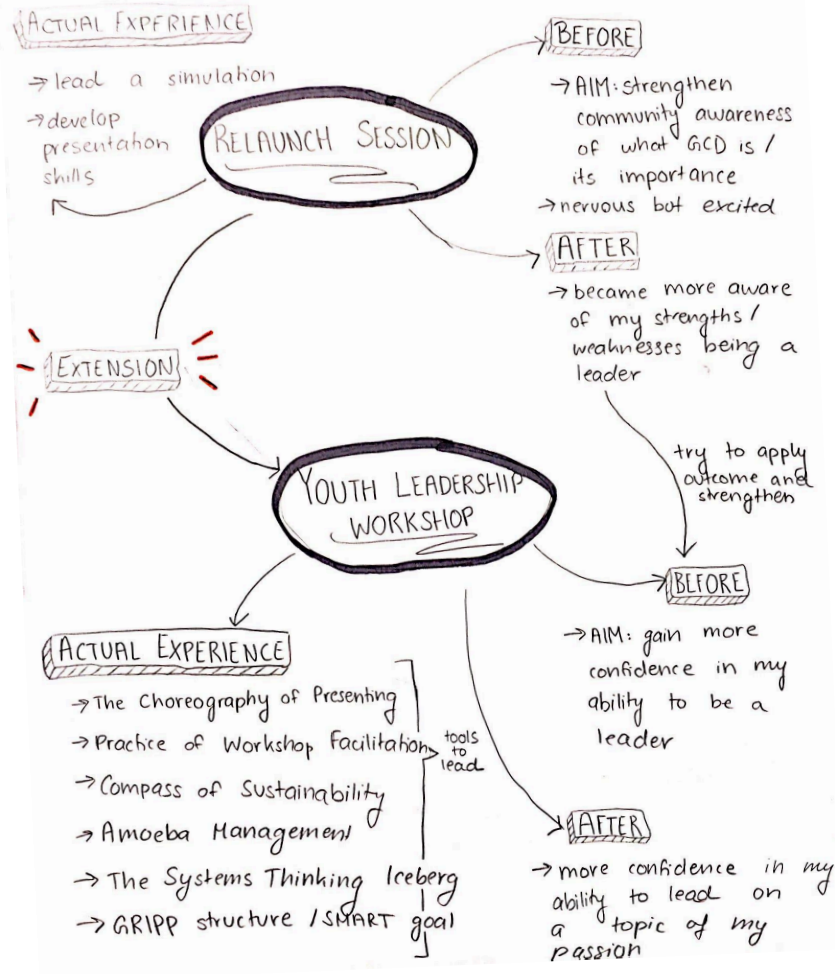 ACTUAL EXPERIENCE
→ lead a simulation
→ develop
presentation
skills
RELAUNCH SESSION
BEFORE
→ AIM: strengthen
community awareness
of what GCD is /
its importance
→ nervous but excited
AFTER
→ became more aware
of my strengths /
weaknesses being a
leader
EXTENSION
try to apply
outcome and
strengthen
YOUTH LEADERSHIP
WORKSHOP
BEFORE
→ AIM: gain more
confidence in my
ability to be a
leader
ACTUAL EXPERIENCE
→ The Choreography of Presenting
→ Practice of Workshop Facilitation
→ Compass of Sustainability
→ Amoeba Management
→ The Systems Thinking Iceberg
→ GRIPP structure / SMART goal
tools
to
lead
AFTER
→ more confidence in my
ability to lead on
a topic of my
passion